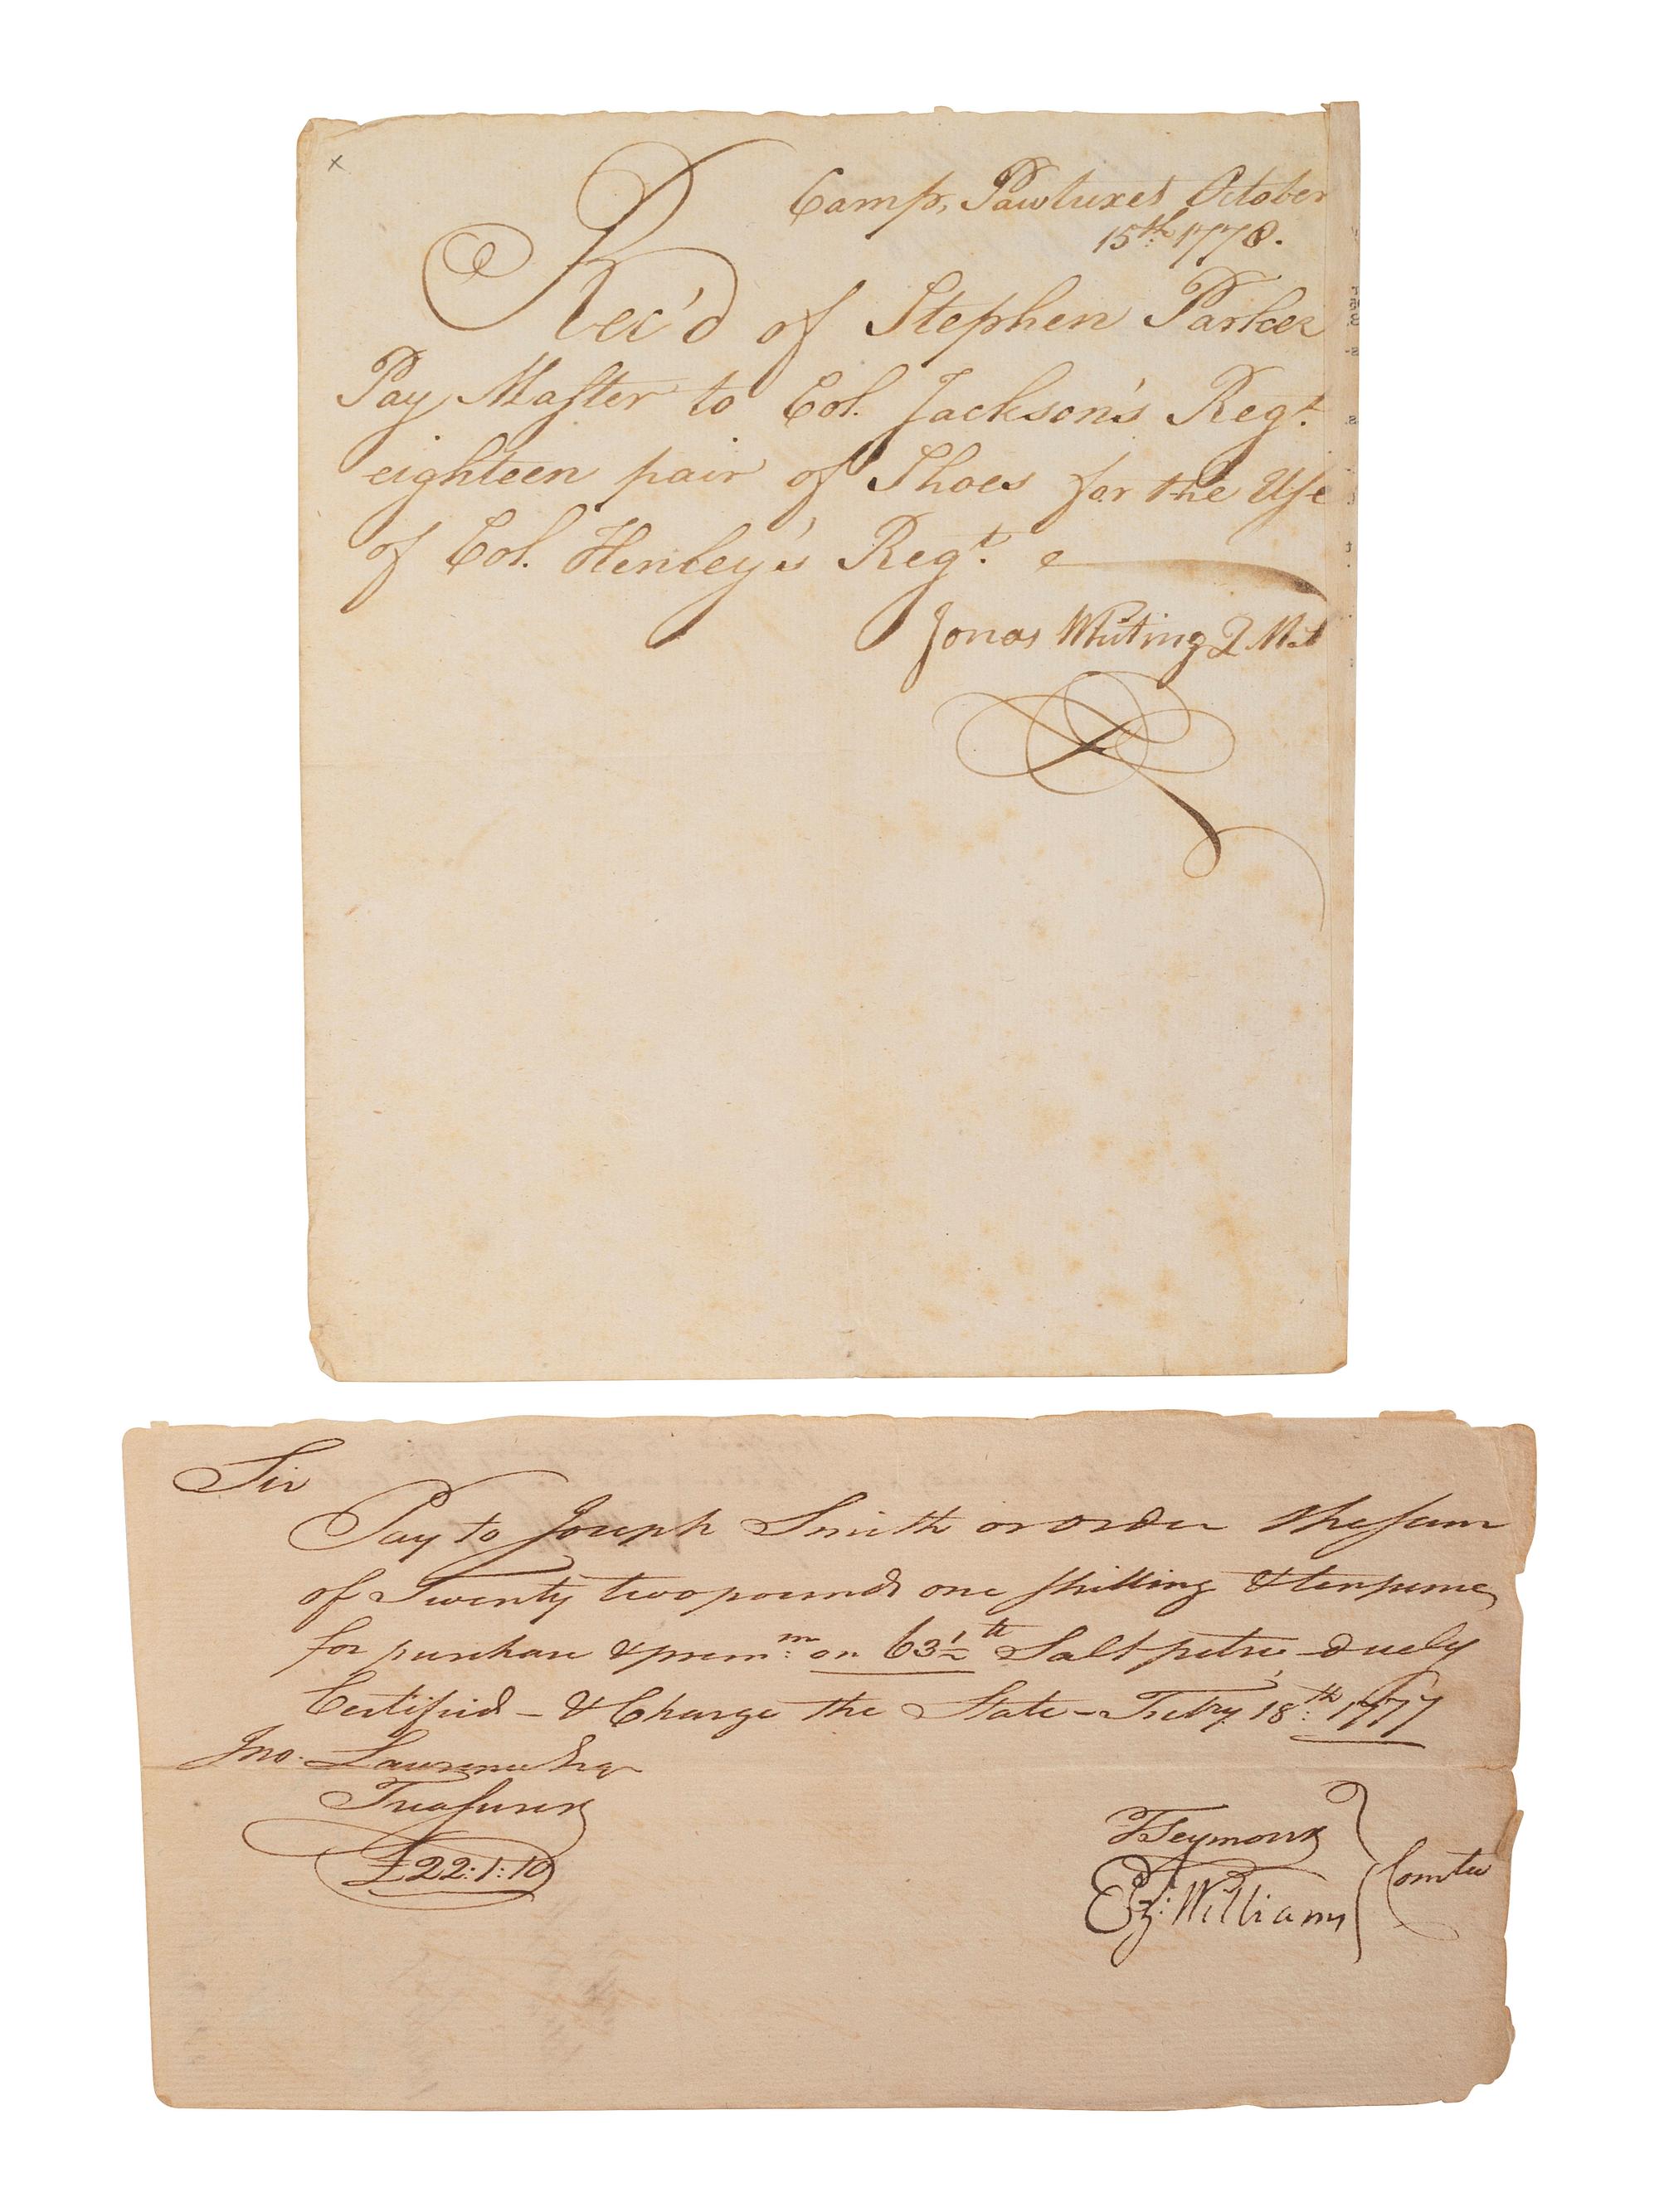 x
Camp, Pawtuxet October
15th. 1778.
Rec'd of Stephen Parker
Pay Master to Col. Jackson's Regt.
eighteen pair of Shoes for the Use
of Col. Henley's Regt.
Jonas Whiting Q M
Sir
Pay to Joseph Smith or order the sum
of Twenty two pounds one shilling & ten pence
for purchase & prem.m on 63½ lb Salt petre duely
Certified - & Charge the State - Febry. 18th: 1777
Jno. Lawrence Esqr
Treasurer
£22:1:10
T Seymour
Ez: Williams
Comtee